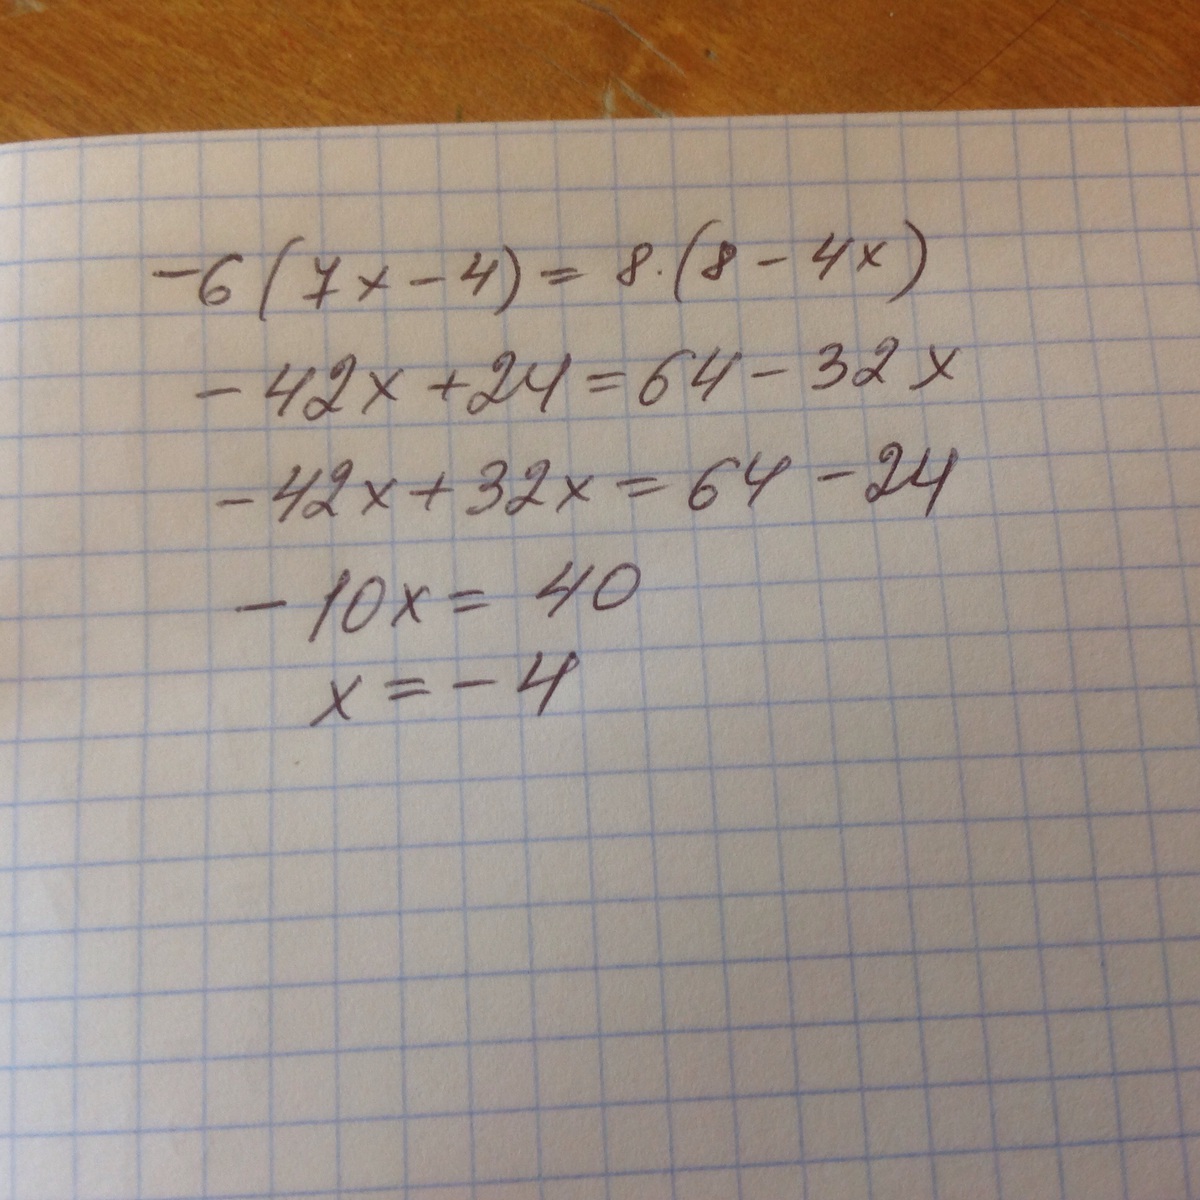 -6(7x-4)=8·(8-4x)
-42x+24=64-32x
-42x+32x=64-24
-10x=40
x=-4